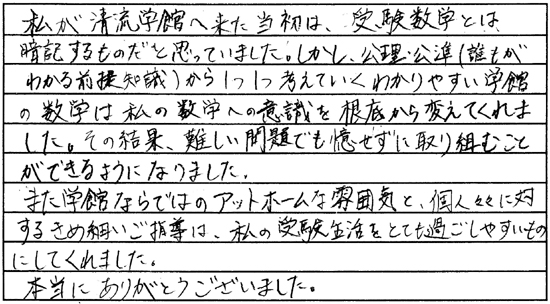 私が清流学館へ来た当初は、受験数学とは
暗記するものだと思っていました。しかし、公理・公準(誰もが
わかる前提知識)から1つ1つ考えていくわかりやすい学館
の数学は私の数学への意識を根底から変えてくれま
した。その結果、難しい問題でも憶せずに取り組むこと
ができるようになりました。
また学館ならではのアットホームな雰囲気と、個人々々に対
するきめ細いご指導は、私の受験生活をとても過ごしやすいもの
にしてくれました。
本当にありがとうございました。